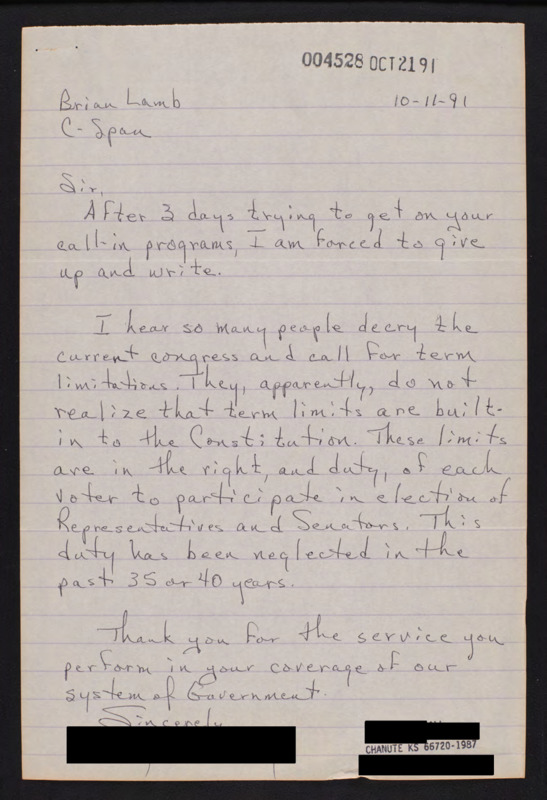 004528 OCT 21 91
Brian Lamb 10-11-91
C-Span
Sir,
After 3 days trying to get on your
call-in programs, I am forced to give
up and write.
I hear so many people decry the
current congress and call for term
limitations. They, apparently, do not
realize that term limits are built-
in to the Constitution. These limits
are in the right, and duty, of each
voter to participate in election of
Representatives and Senators. This
duty has been neglected in the
past 35 or 40 years.
Thank you for the service you
perform in your coverage of our
system of Government.
Sincerely
CHANUTE KS 66720-1987